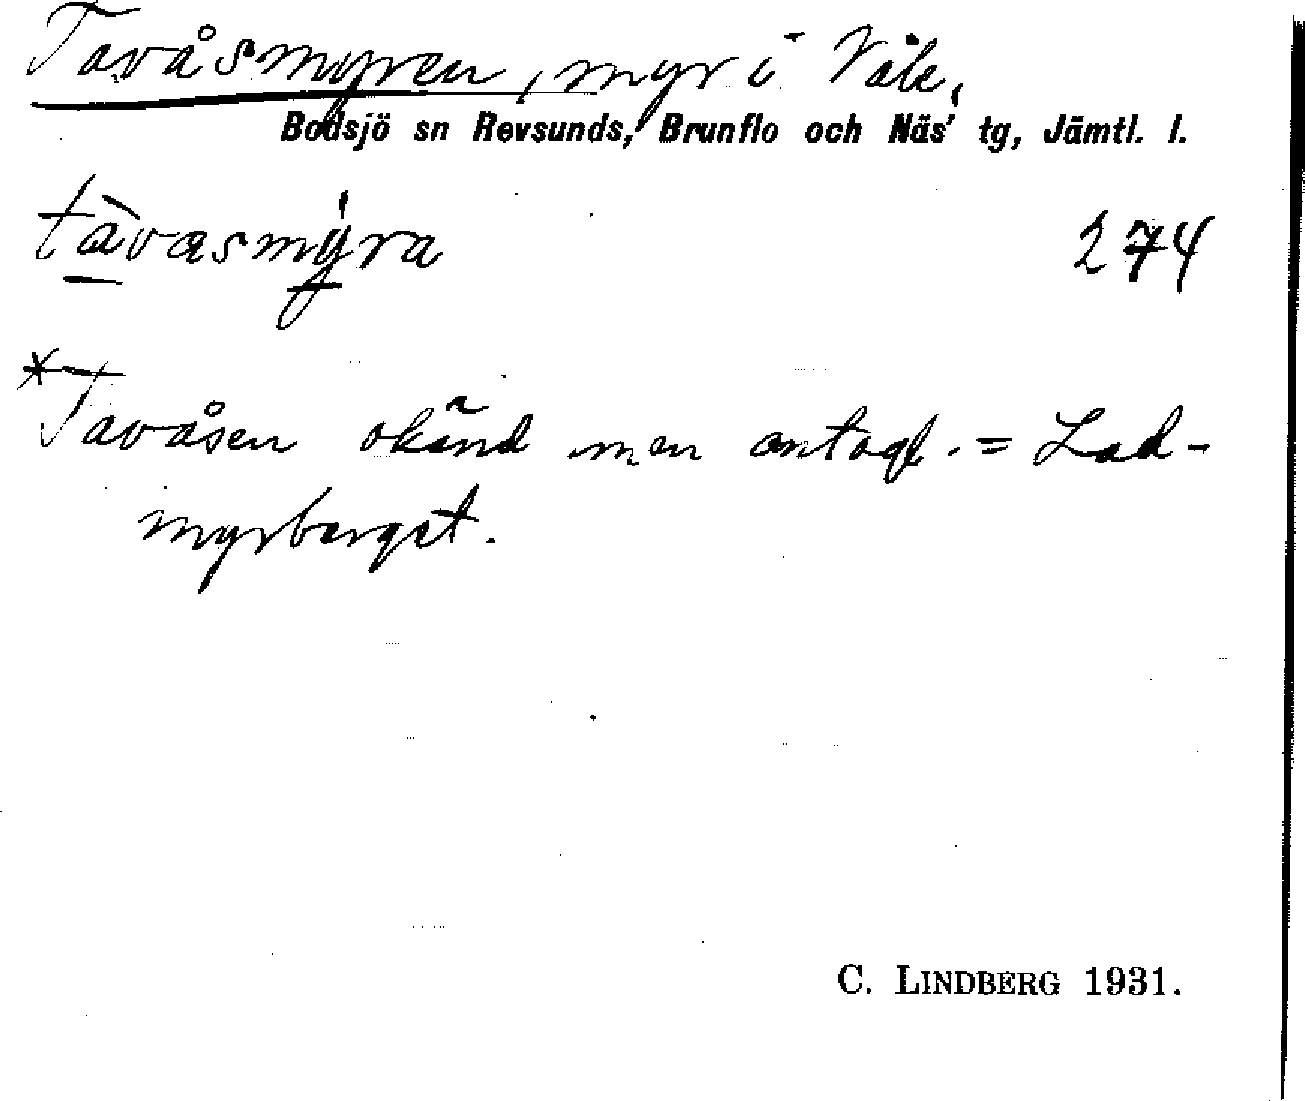 Tavåsmyren, myr i Våle,
Bodsjö sn Revsunds, Brunflo och Näs' tg, Jämtl. l.
tàvasmýra 274
*Tavåsen okänd men antagl. = Lad-
myrberget.
C. LINDBERG 1931.